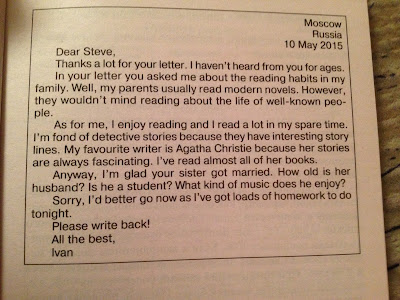 Moscow
Russia
10 May 2015
Dear Steve,
Thanks a lot for your letter. I haven't heard from you for ages.
In your letter you asked me about the reading habits in my
family. Well, my parents usually read modern novels. However,
they wouldn't mind reading about the life of well-known peo-
ple.
As for me, I enjoy reading and I read a lot in my spare time.
I'm fond of detective stories because they have interesting story
lines. My favourite writer is Agatha Christie because her stories
are always fascinating. I've read almost all of her books.
Anyway, I'm glad your sister got married. How old is her
husband? Is he a student? What kind of music does he enjoy?
Sorry, I'd better go now as I've got loads of homework to do
tonight.
Please write back!
All the best,
Ivan